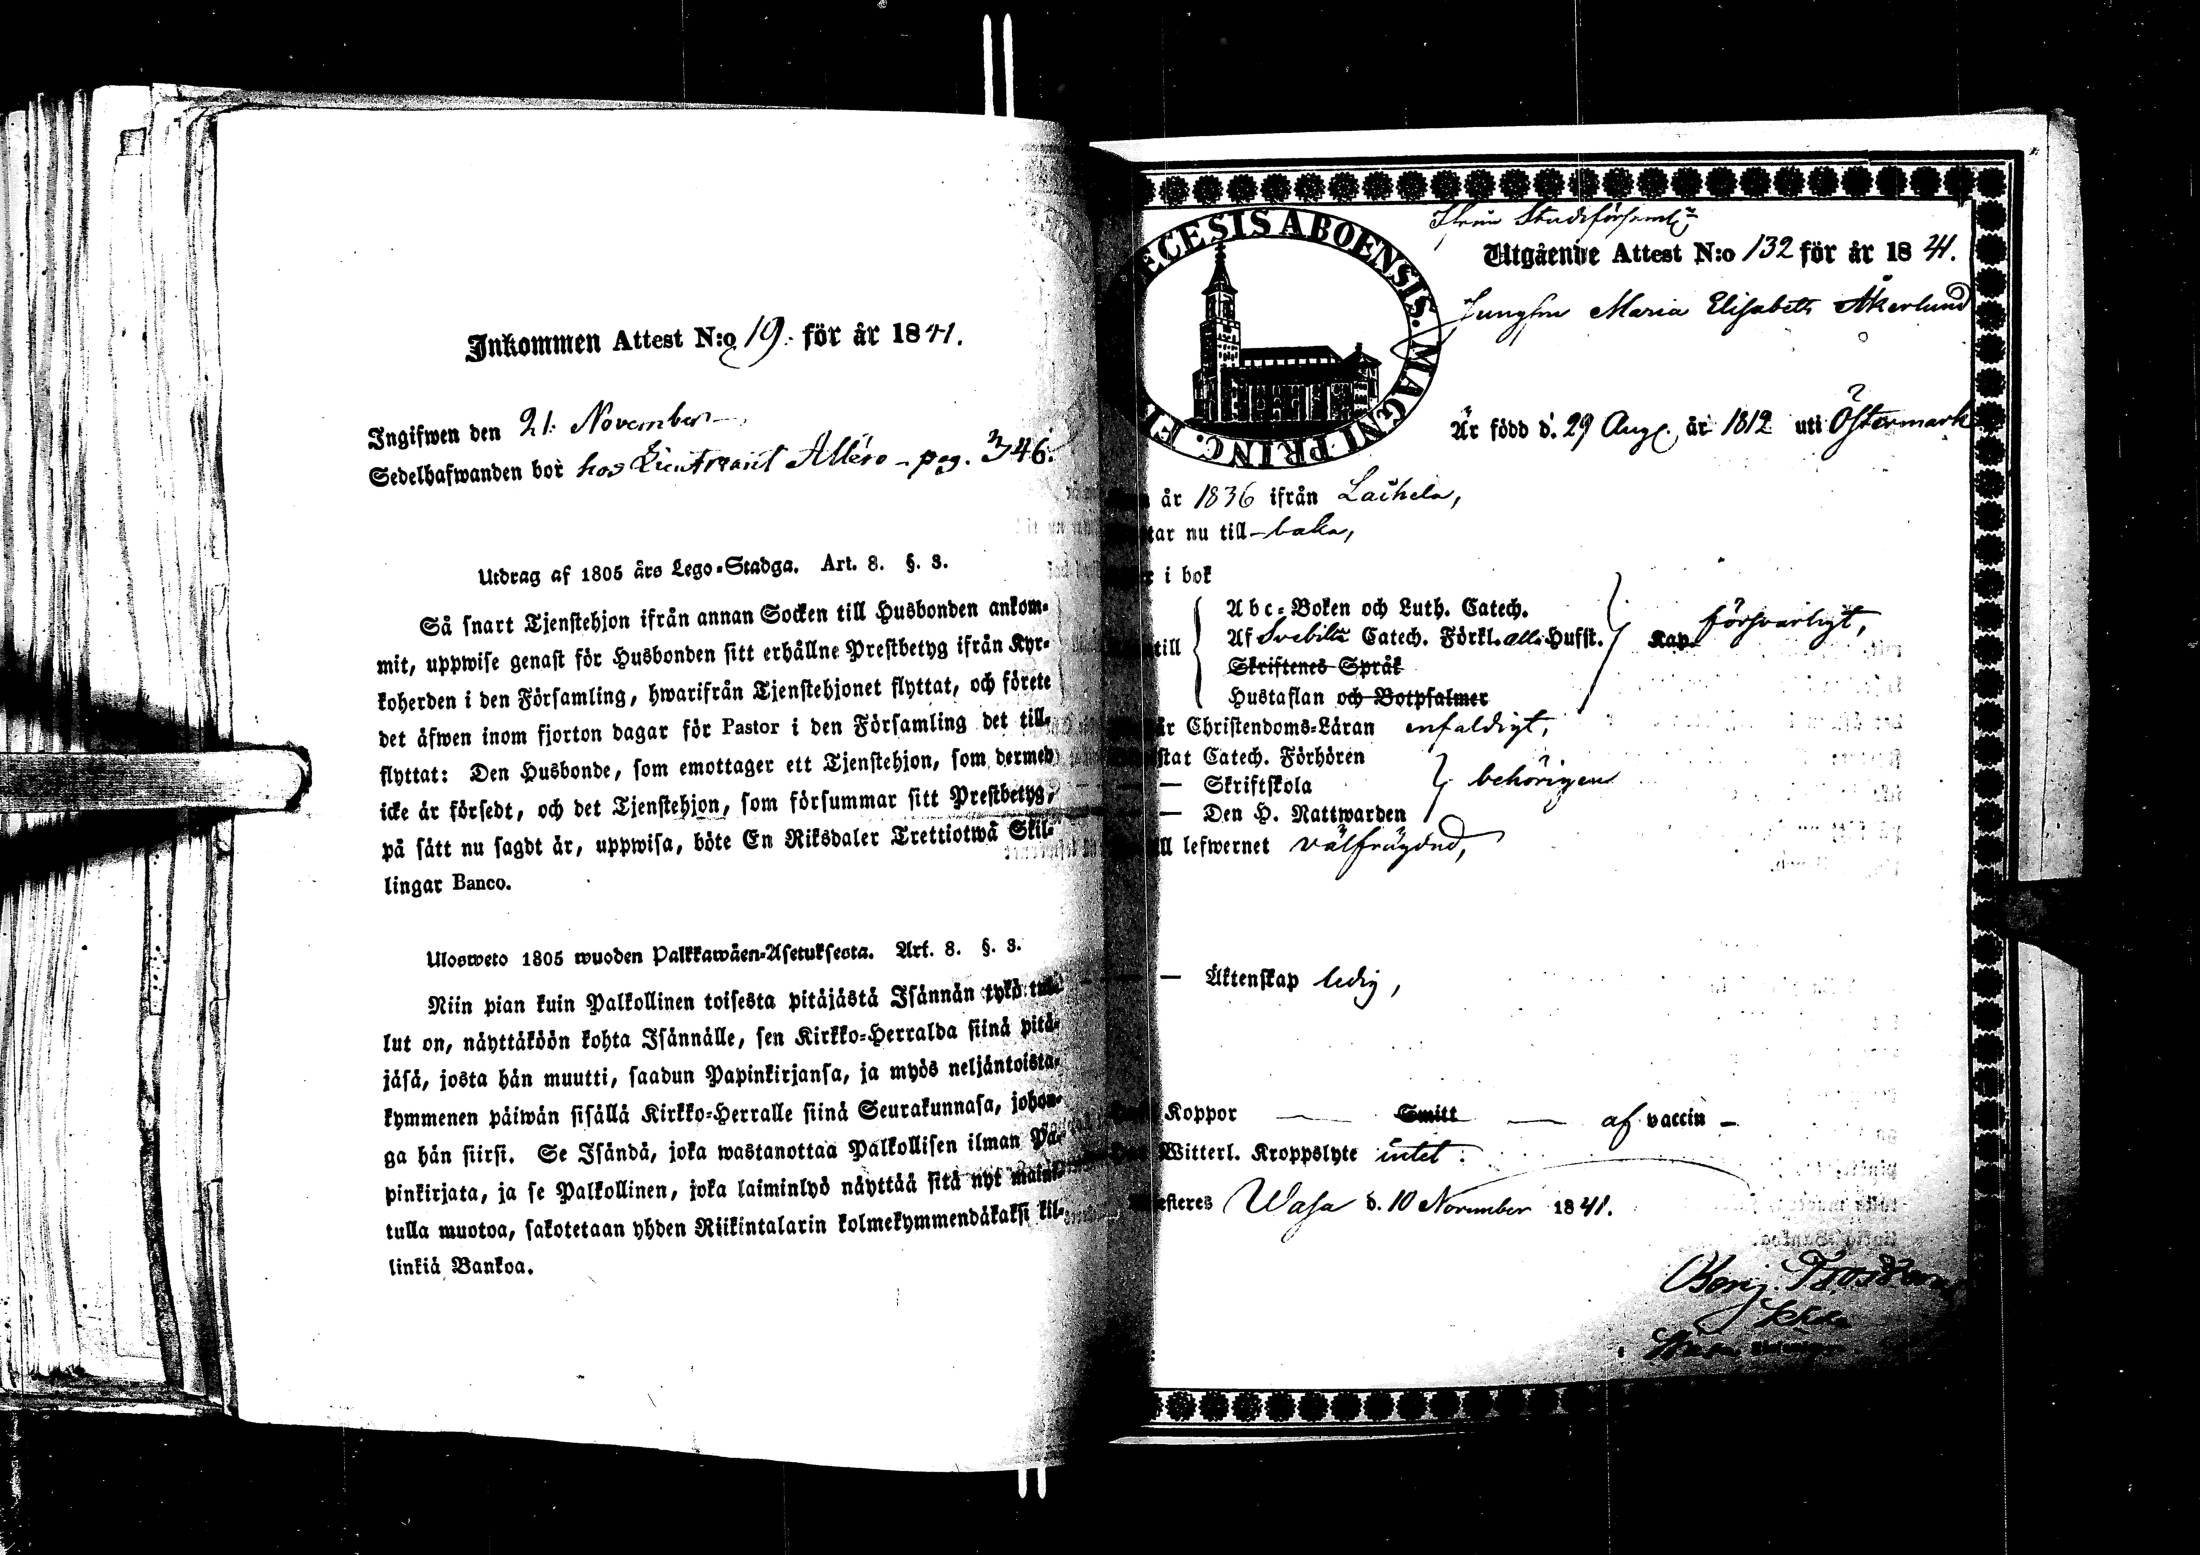 Inkommen Attest N:o 19. för år 1841.
Ingifwen den 21. November
Sedelhafwanden bor hos Lieutnant Alléro - pag. 346.
Utdrag af 1805 års Lego-Stadga. Art. 8. §. 3.
Så snart Tjenstehjon ifrån annan Socken till Husbonden ankom-
mit, uppwise genast för Husbonden sitt erhållne Prestbetyg ifrån Kyr-
koherden i den Församling, hwarifrån Tjenstehjonet flyttat, och förete
det äfwen inom fjorton dagar för Pastor i den Församling det till-
flyttat: Den Husbonde, som emottager ett Tjenstehjon, som dermed
icke är försedt, och det Tjenstehjon, som försummar sitt Prestbetyg,
på sätt nu sagdt är, uppwisa, böte En Riksdaler Trettiotwå Skil-
lingar Banco.
Ulosweto 1805 wuoden Palkkawäen-Asetuksesta. Art. 8. §. 3.
Niin pian kuin Palkollinen toisesta pitäjästä Isännän tykö tul-
lut on, näyttäköön kohta Isännälle, sen Kirkko-Herralda siinä pitä-
jäsä, josta hän muutti, saadun Papinkirjansa, ja myös neljäntoista-
kymmenen päiwän sisällä Kirkko-Herralle siinä Seurakunnasa, johon-
ga hän siirsi. Se Isändä, joka wastanottaa Palkollisen ilman Pa-
pinkirjata, ja se Palkollinen, joka laiminlyö näyttää sitä nyt mainit-
tulla muotoa, sakotetaan yhden Riikintalarin kolmekymmendäkaksi kil-
linkiä Bankoa.
ECESIS ABOENSIS. MAGNI PRINC. FI
Stadsförsaml:
Utgående Attest N:o 132 för år 1841.
Jungfru Maria Elisabeth Åkerlund
Är född d. 29 Aug. år 1812 uti Östermark
år 1836 ifrån Laihela,
tar nu till-baka,
i bok
till Abc-Boken och Luth. Catech.
Af Svebilii Catech. Förkl. alla Husst. Kap. försvarligt,
Skriftenes Språk
Hustaflan och Botpsalmer
är Christendoms-Läran enfaldigt,
stat Catech. Förhören
— Skriftskola behörigen
— Den H. Nattwarden
ll lefwernet välfrägdad,
— — Äktenskap ledig,
Koppor — Smitt — af vaccin -
Witterl. Kroppslyte intet.
esteres Wasa d. 10 November 1841.
Benj.